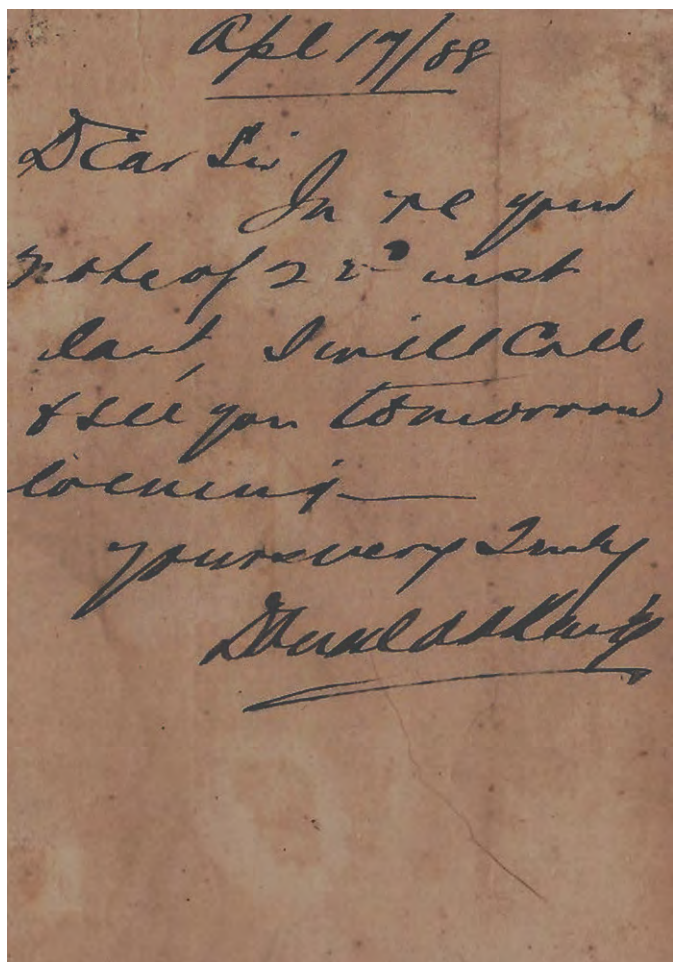 Apl 17/88
Dear Sir
In re your
note of 22d inst
last, I will Call
& see you tomorrow
evening
yours very Truly